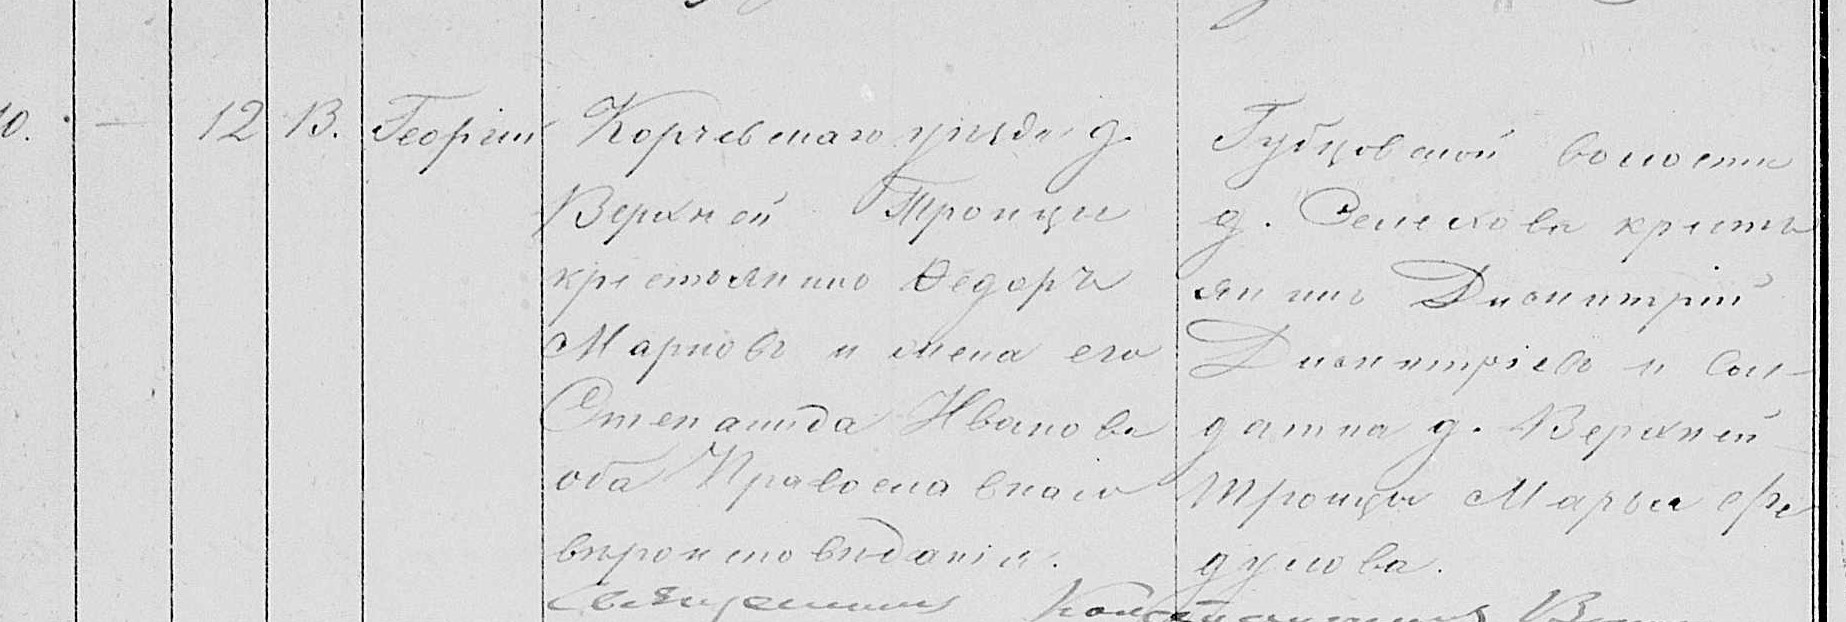 10. — 12 13. Георгій
Корчевскаго уѣзда д.
Верхней Троицы
крестьянинъ Ѳедоръ
Марковъ и жена его
Степанида Иванова
оба Православнаго
вѣроисповѣданія.
Губцовской волости
д. Селехова кресть
янинъ Димитрій
Димитріевъ и сол-
датка д. Верхней
Троицы Марья
дулова.
Священникъ Константинъ